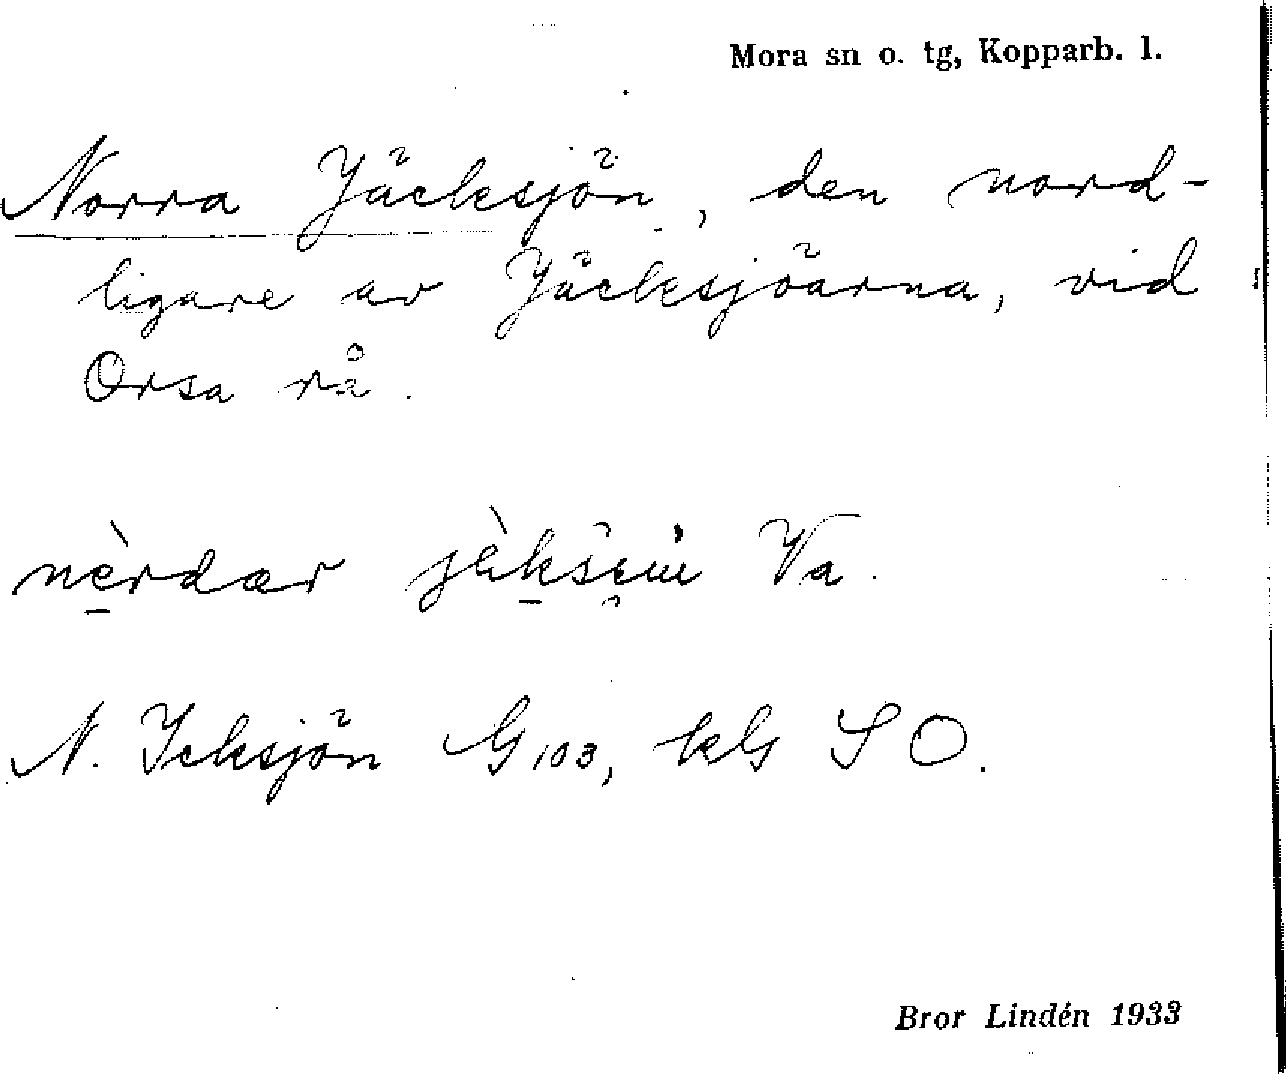 Mora sn o. tg, Kopparb. l.
Norra Jäcksjön, den nord-
ligare av Jäcksjöarna, vid
Orsa rå.
nèrdær Va.
N. Icksjön G103, kG SO.
Bror Lindén 1933